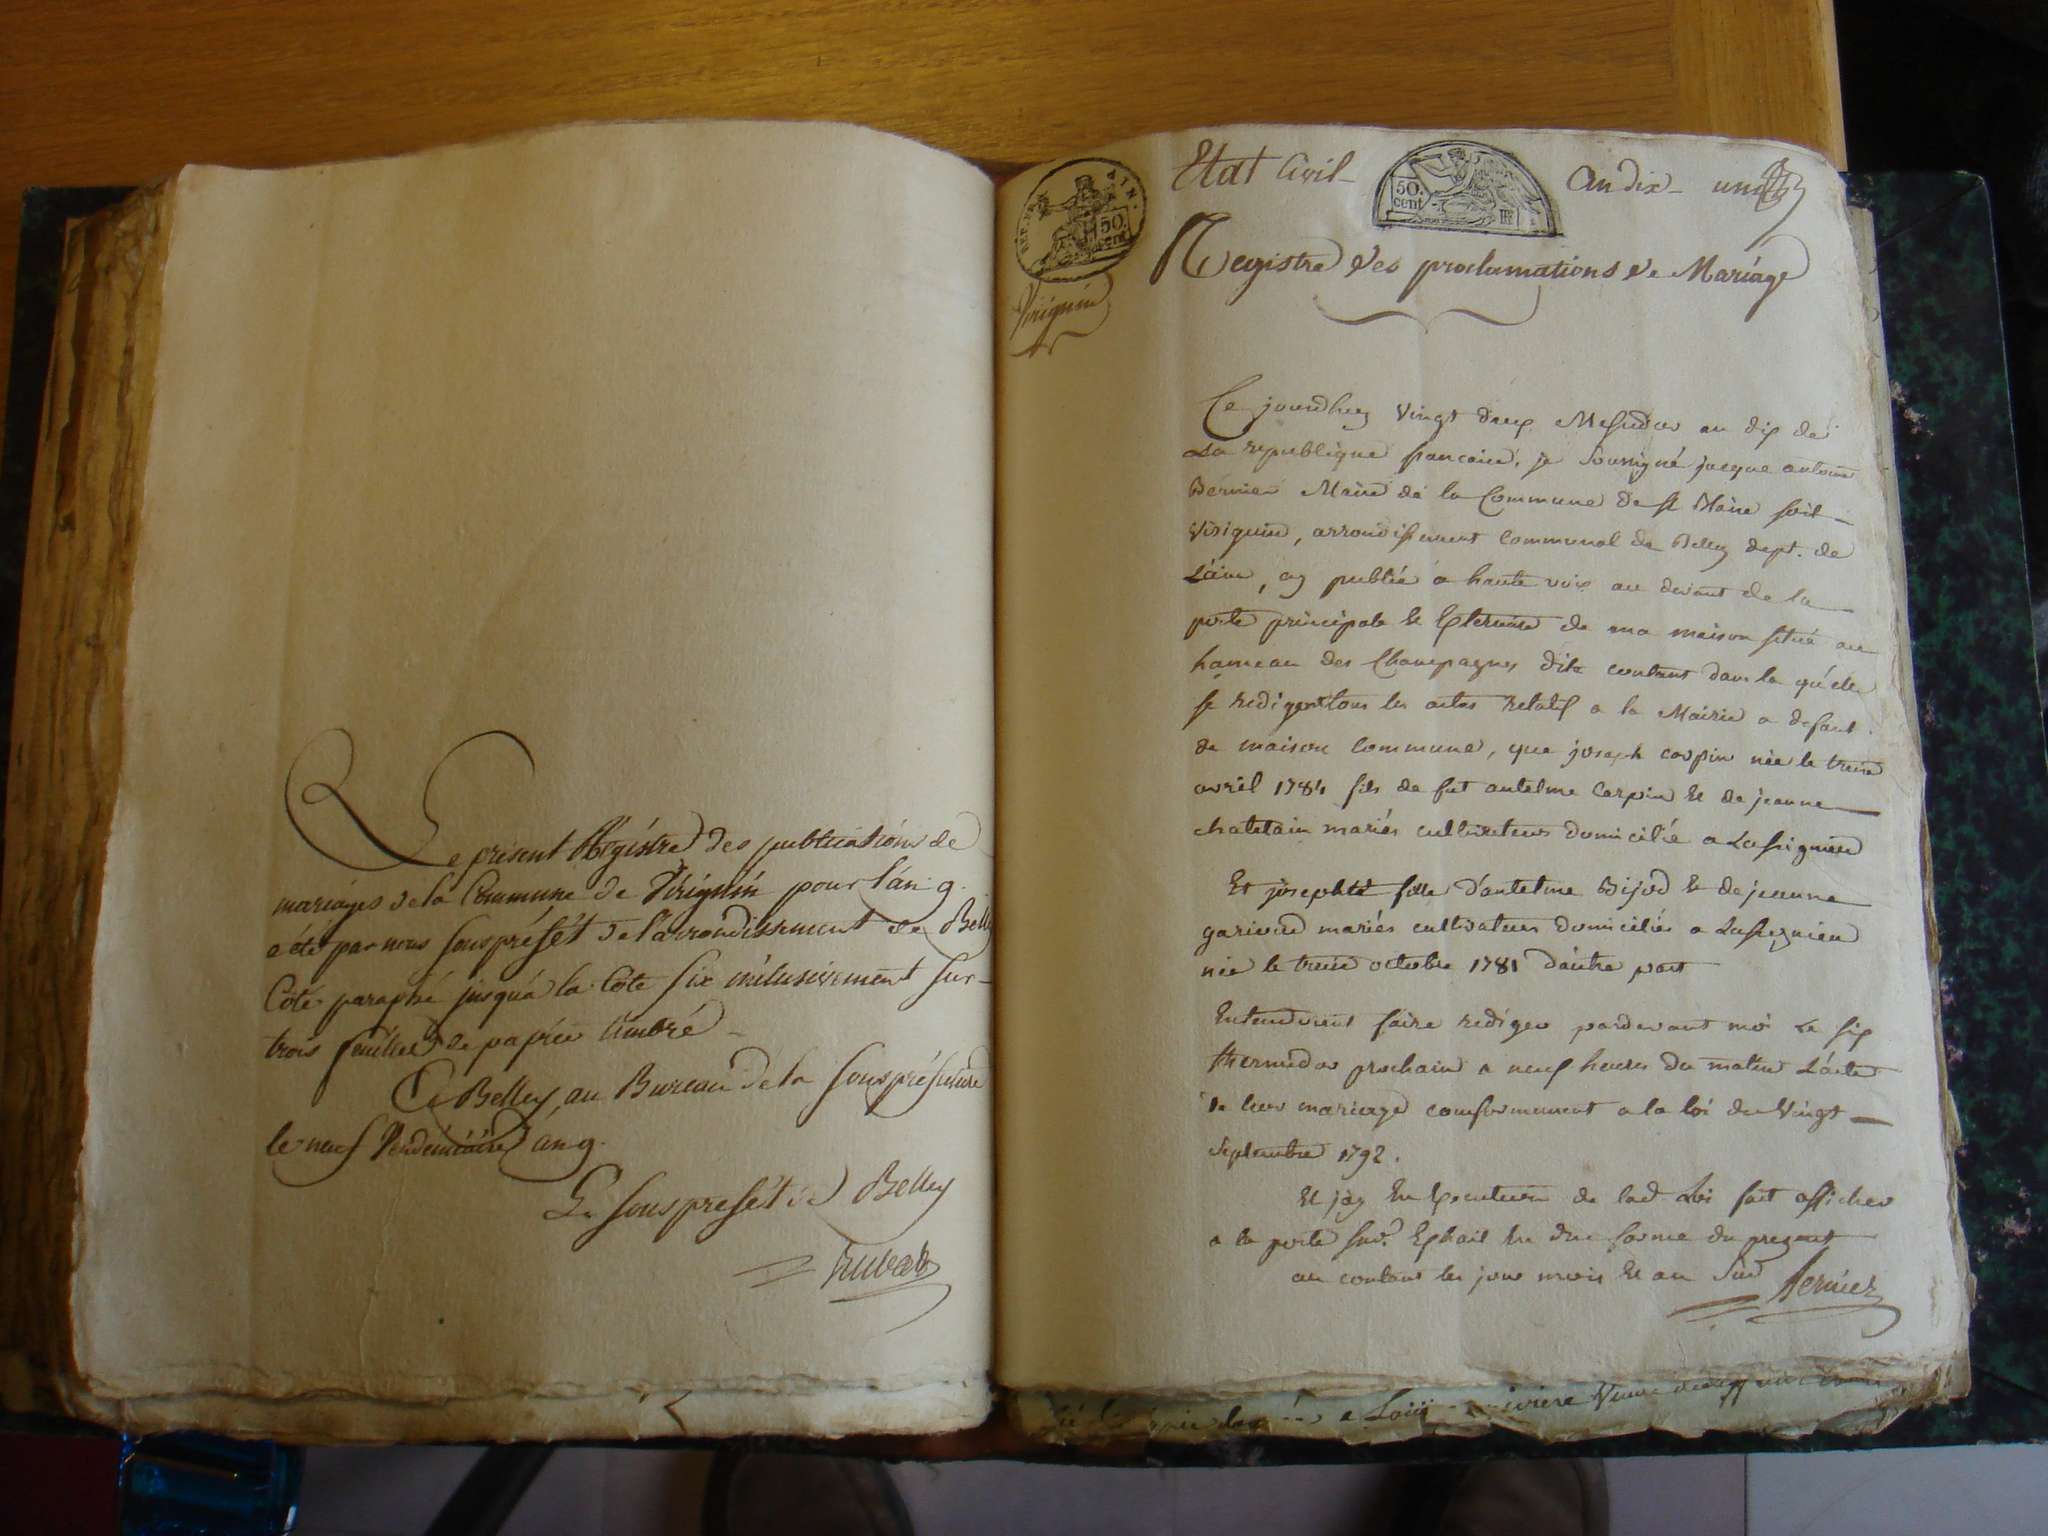 Le présent Régistre des publications de
mariages de la Commune de Virignin pour l'an 9.
a été par nous sous préfét de l'arrondissement de Belley
Coté paraphé jusqu'a la Cote Six inclusivement sur
trois feuilles de papier timbré
A Belley, au Bureau de la sous préfecture
le neuf Vendémiaire an 9.
Le sous préfét de Belley
REP. FRA. AIN.
50. cent
Virignin
Etat Civil
50. cent RF
an dix un
Registre des proclamations de Mariage
Ce jourdhuy vingt deux Messidor an dix de
La republique francaise, je soussigné jacque antoine
Bernier Maire de la Commune de st Blaise soit
Virignin, arrondissement Communal de Belley dept. de
L'ain, ay publié a haute voix au devant de la
porte principale et Exterieure de ma maison situé au
hameau des Champagnes dit contant dans la qu'elle
se redigent tous les actes relatif a la Mairie a defaut
de maison Commune, que joseph carpin née le treize
avril 1781 fils de fut antelme Carpin et de jeanne
chatelain mariés cultivateurs domicilié a
Et josephte fille d'antelme Bijod et de jeanne
mariés cultivateurs domiciliés a
née le treize octobre 1781 d'autre part
Entendoient faire rediger pardevant moi Le six
thermidor prochain a neuf heures du matin L'acte
de leur mariage conformement a la loi du vingt
septembre 1792.
Et j'ay En Execution de lad. Loi fait afficher
a la porte sud. Extrait En due forme du present
au contant les jour mois et an Sud
Bernier